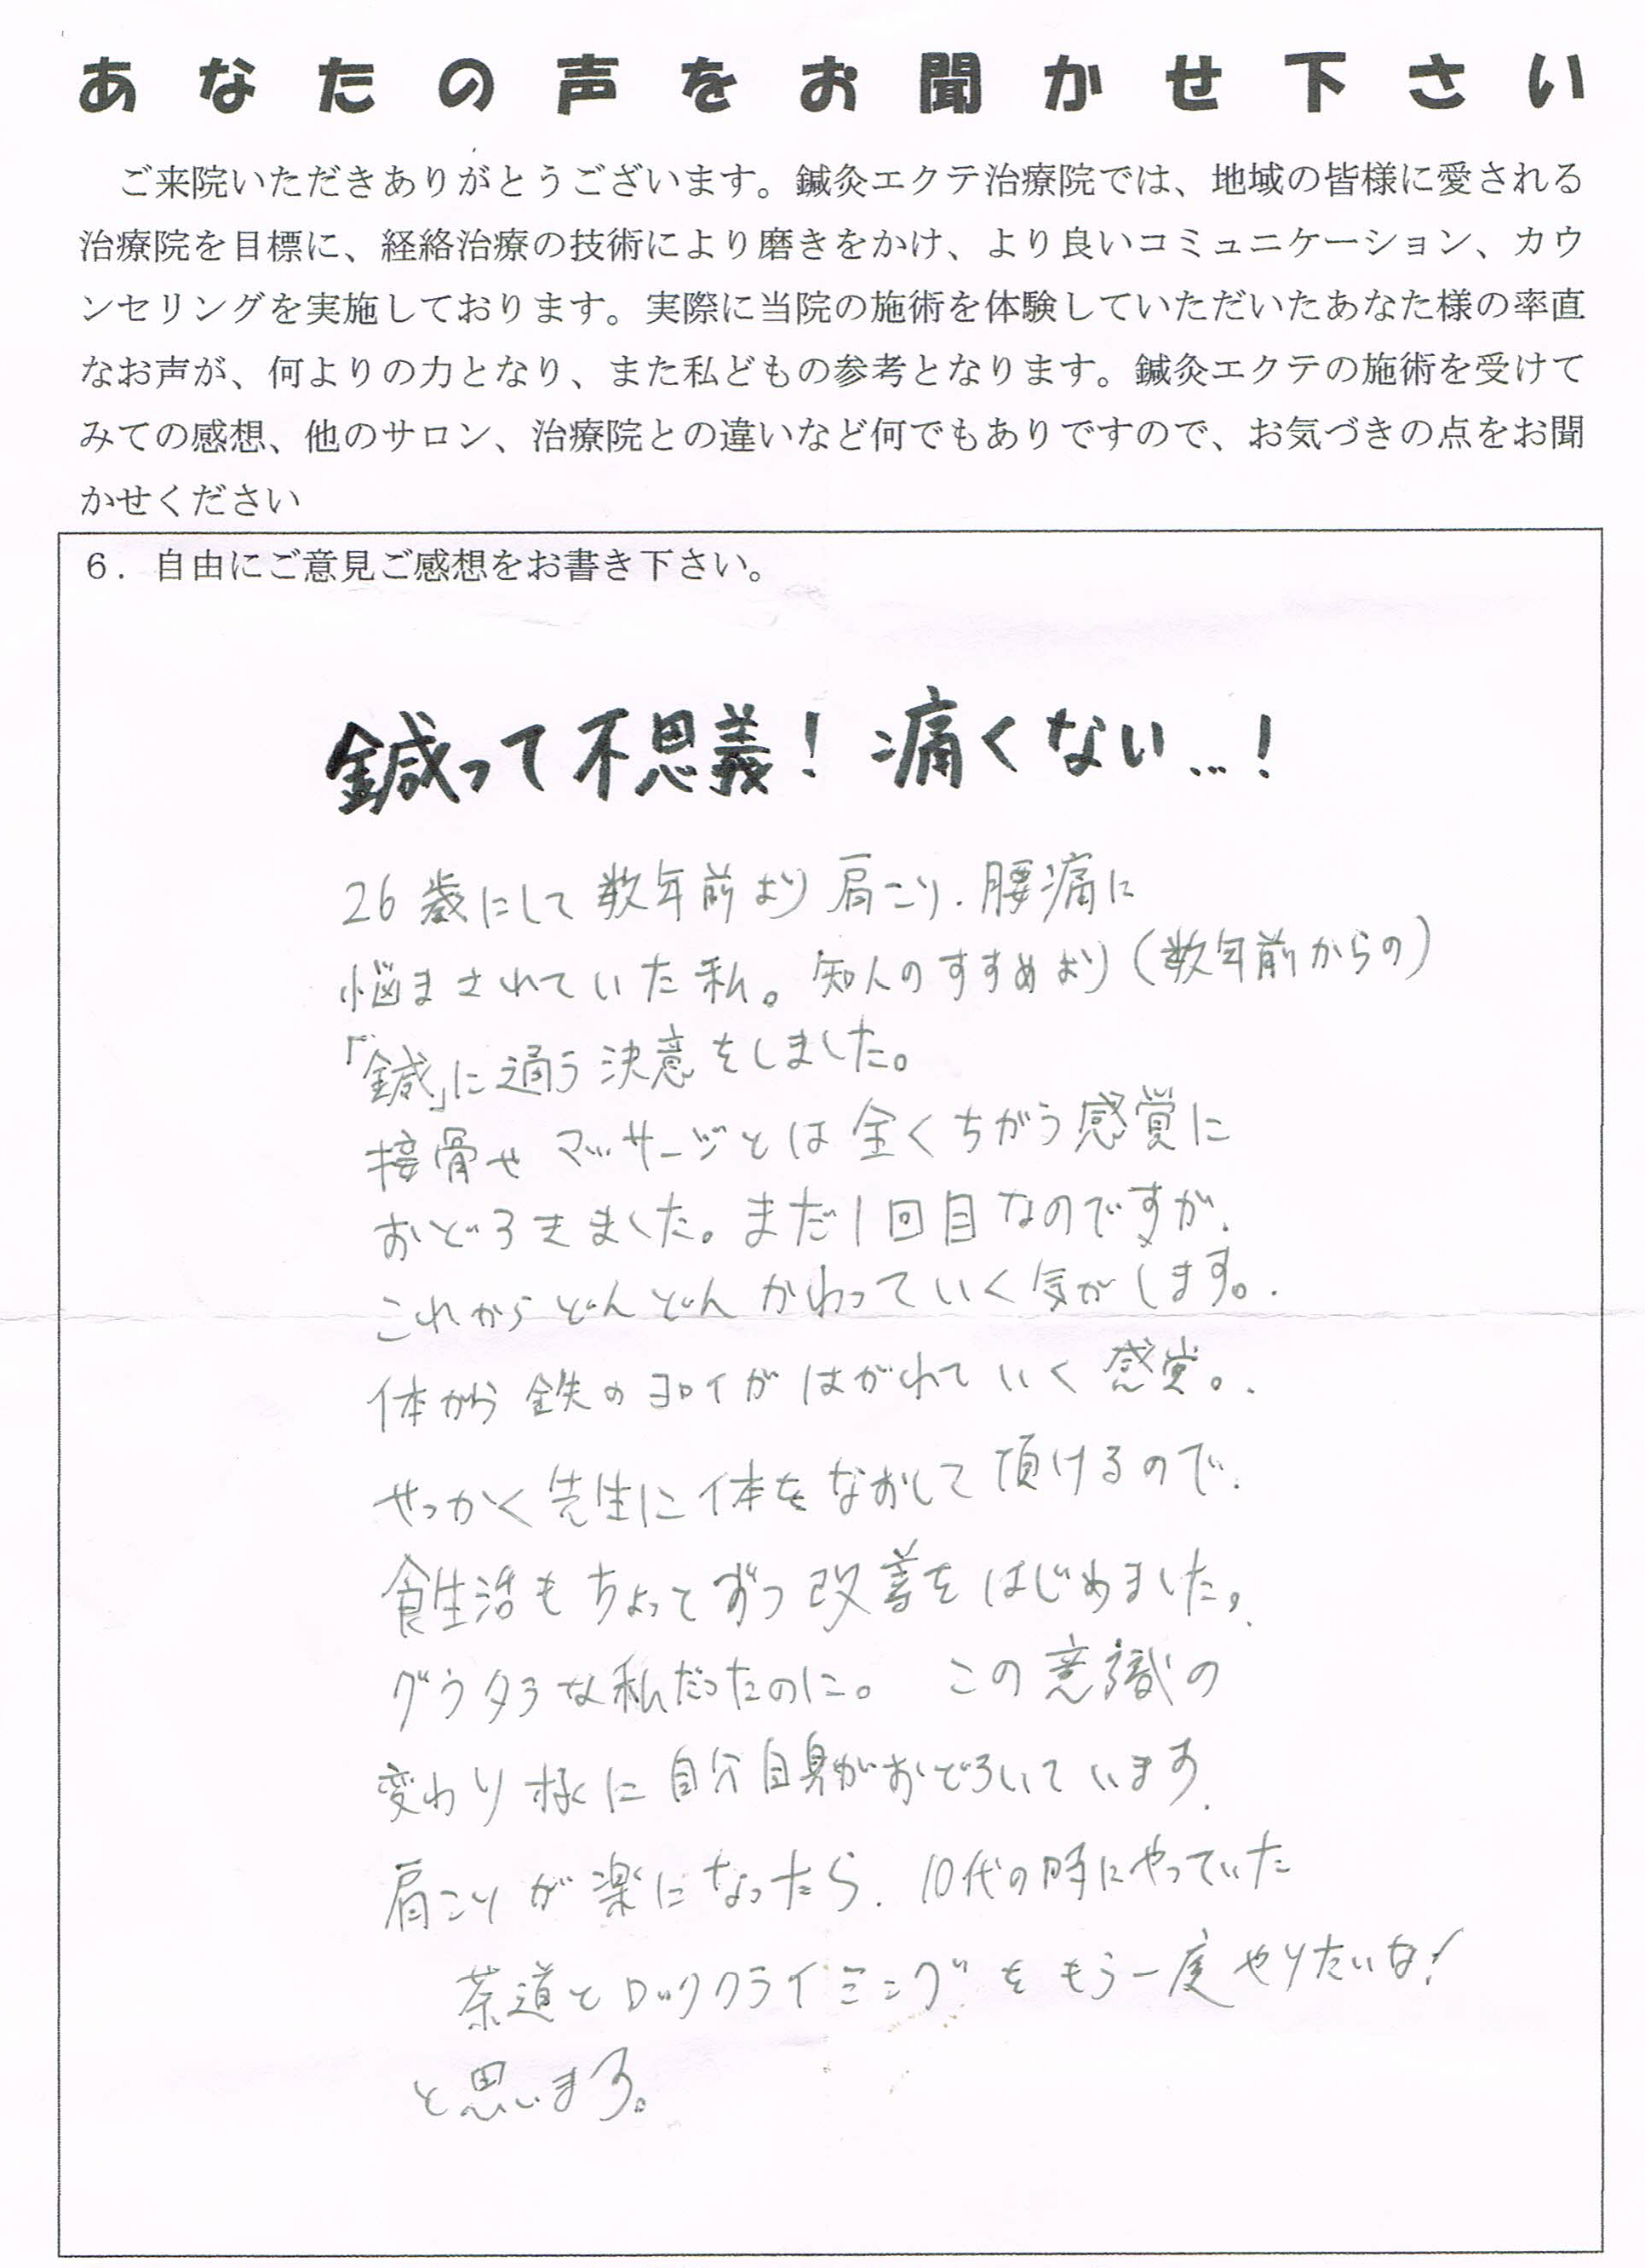 あなたの声をお聞かせ下さい
ご来院いただきありがとうございます。鍼灸エクテ治療院では、地域の皆様に愛される
治療院を目標に、経絡治療の技術により磨きをかけ、より良いコミュニケーション、カウ
ンセリングを実施しております。実際に当院の施術を体験していただいたあなた様の率直
なお声が、何よりの力となり、また私どもの参考となります。鍼灸エクテの施術を受けて
みての感想、他のサロン、治療院との違いなど何でもありですので、お気づきの点をお聞
かせください
6．自由にご意見ご感想をお書き下さい。
鍼って不思義！痛くない…！
26歳にして数年前より肩こり、腰痛に
悩まされていた私。知人のすすめより（数年前からの）
「鍼」に通う決意をしました。
接骨やマッサージとは全くちがう感覚に
おどろきました。まだ1回目なのですが、
これからどんどんかわっていく気がします。
体から鉄のヨロイがはがれていく感覚。
せっかく先生に体をなおして頂けるので、
食生活もちょっとずつ改善をはじめました。
グウタラな私だったのに。この意識の
変わり様に自分自身がおどろいています。
肩こりが楽になったら、10代の時にやっていた
茶道とロッククライミングをもう一度やりたいな！
と思います。